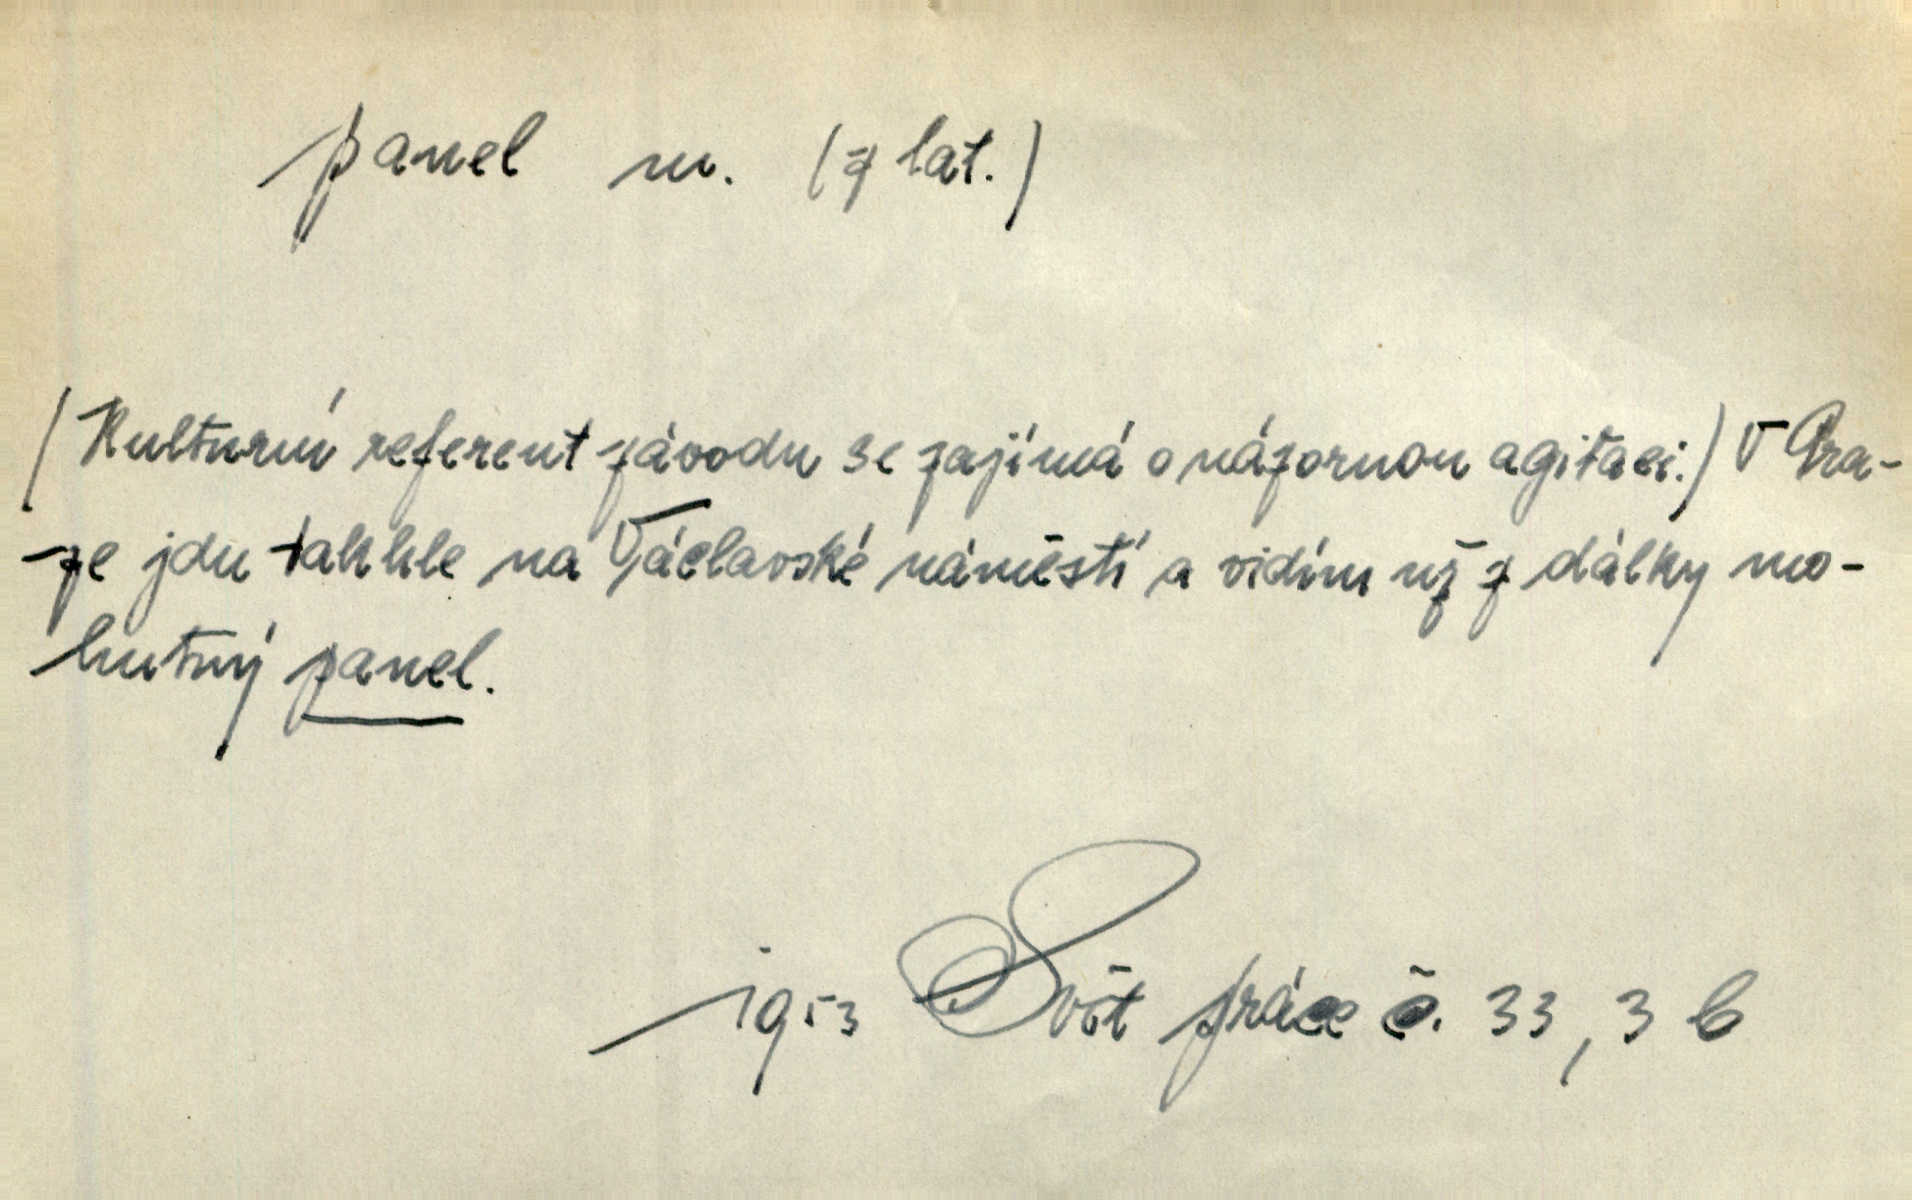 panel m. (z lat.)
(Kulturní referent závodu se zajímá o názornou agitaci.) V Pra-
ze jdu takhle na Václavské náměstí a vidím už z dálky mo-
hutný panel.
1953 Svět práce č. 33, 3 b